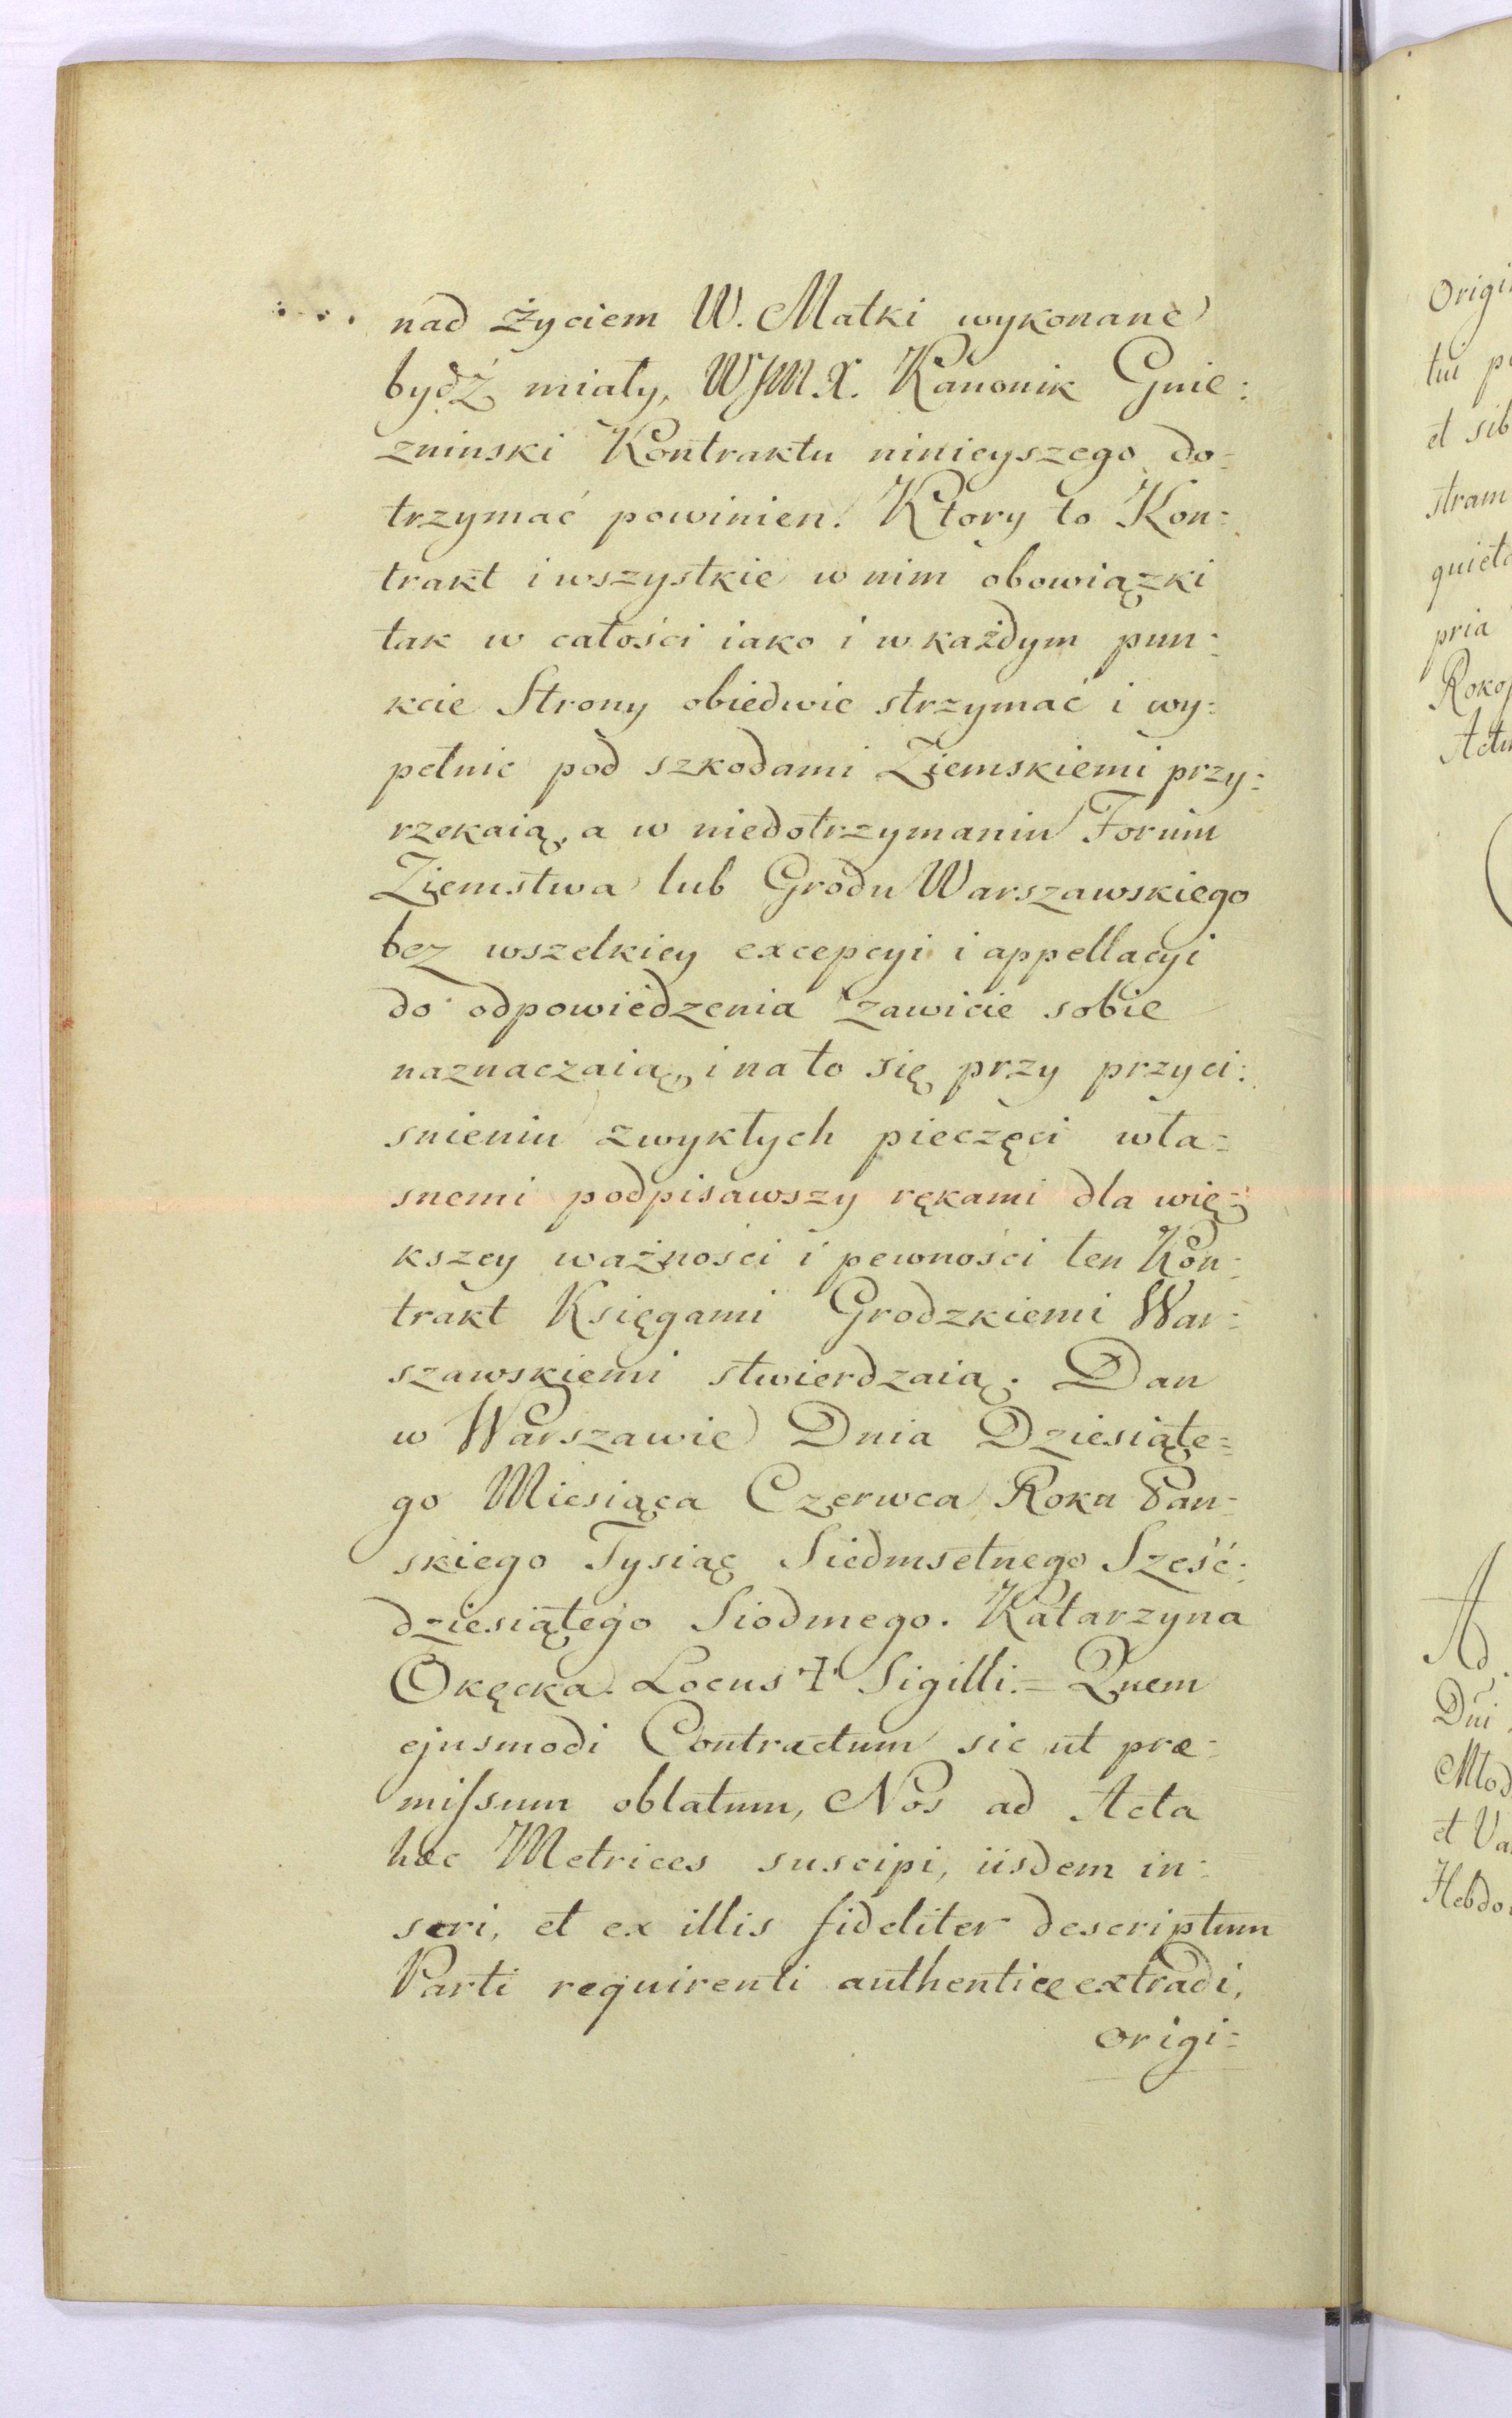 nad życiem W. Matki wykonane
bydź miały, WJM. X. Kanonik Gnie:
zninski Kontraktu ninieyszego do:
trzymać powinien. Ktory to Kon:
trakt i wszystkie w nim obowiązki
tak w całości iako i w każdym pun:
kcie Strony obiedwie strzymać i wy:
pełnic pod szkodami Ziemskiemi przy:
rzekaią, a w niedotrzymaniu Forum
Ziemstwa lub Grodu Warszawskiego
bez wszelkiey excepcyi i appellacyi
do odpowiedzenia zawicie sobie
naznaczaią, i na to się przy przyci:
snieniu zwykłych pieczęci wła:
snemi podpisawszy rękami dla wię:
kszey ważności i pewności ten Kon:
trakt Księgami Grodzkiemi War:
szawskiemi stwierdzaią. Dan
w Warszawie Dnia Dziesiąte:
go Miesiąca Czerwca Roku Pan:
skiego Tysiąc Siedmsetnego Sześć:
dziesiątego Siodmego. Katarzyna
Okęcka. Locus + Sigilli. = Quem
ejusmodi Contractum sic ut præ:
missum oblatum, Nos ad Acta
hæc Metrices suscipi, iisdem in:
seri, et ex illis fideliter descriptum
Parti requirenti authentice extradi,
origi:
tui
et sib
stram
pria
Dui
et